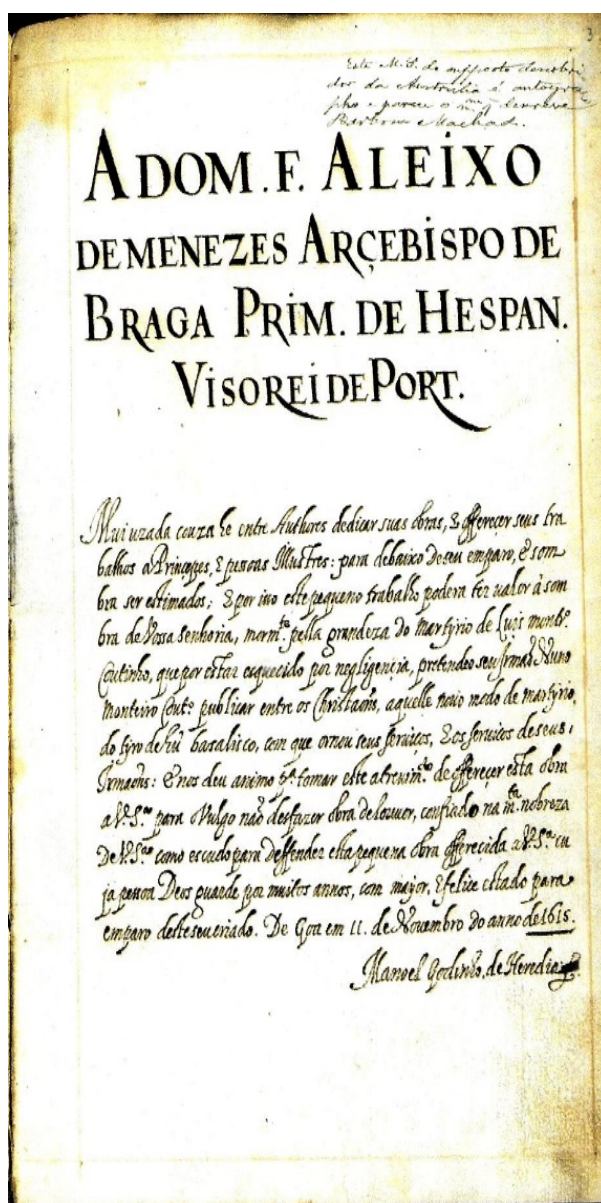 3
Este M.S. do supposto descobri
dor da Australia é autogra
pho e parece o m.mo q
Barbosa Machado.
ADOM. F. ALEIXO
DE MENEZES ARÇEBISPO DE
BRAGA PRIM. DE HESPAN.
VISOREI DE PORT.
Mui uzada couza he entre Authores dedicar suas obras, & offereçer seus tra
balhos a Principes, & pessoas Illustres: para debaixo de seu emparo, & som
bra ser estimados; & por isso este pequeno trabalho podera ter valor à som
bra de Vossa Senhoria, morm.te pella grandeza do Martyrio de Luis montr.o
Coutinho, que por estar esquecido por negligencia, pretendeo seu Irmaõ Nuno
Monteiro Cout.o publicar entre os Christaõs, aquelle novo modo de martyrio,
do tyro de hũ basalisco, com que ornou seus serviços, & os serviços de seus
Irmaõns: & nos deu animo p.a tomar este atrevim.to de offereçer esta obra
a V. S.ria para o Vulgo naõ desfazer obra de louvor, confiado na m.ta nobreza
de V. S.ria como escudo para deffender esta pequena obra offereçida a V. S.ria cu
ja pessoa Deos guarde por muitos annos, com major, & felice estado para
emparo deste seu criado. De Goa em 11. de Novembro do anno de 1615.
Manoel Godinho de Heredia